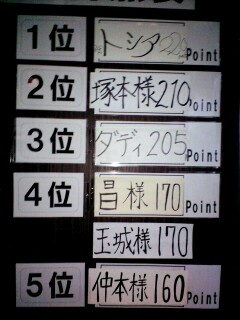 1位 トシア Point
2位 塚本様210 Point
3位 ダディ205 Point
4位 昌様170 Point
玉城様170
5位 仲本様160 Point